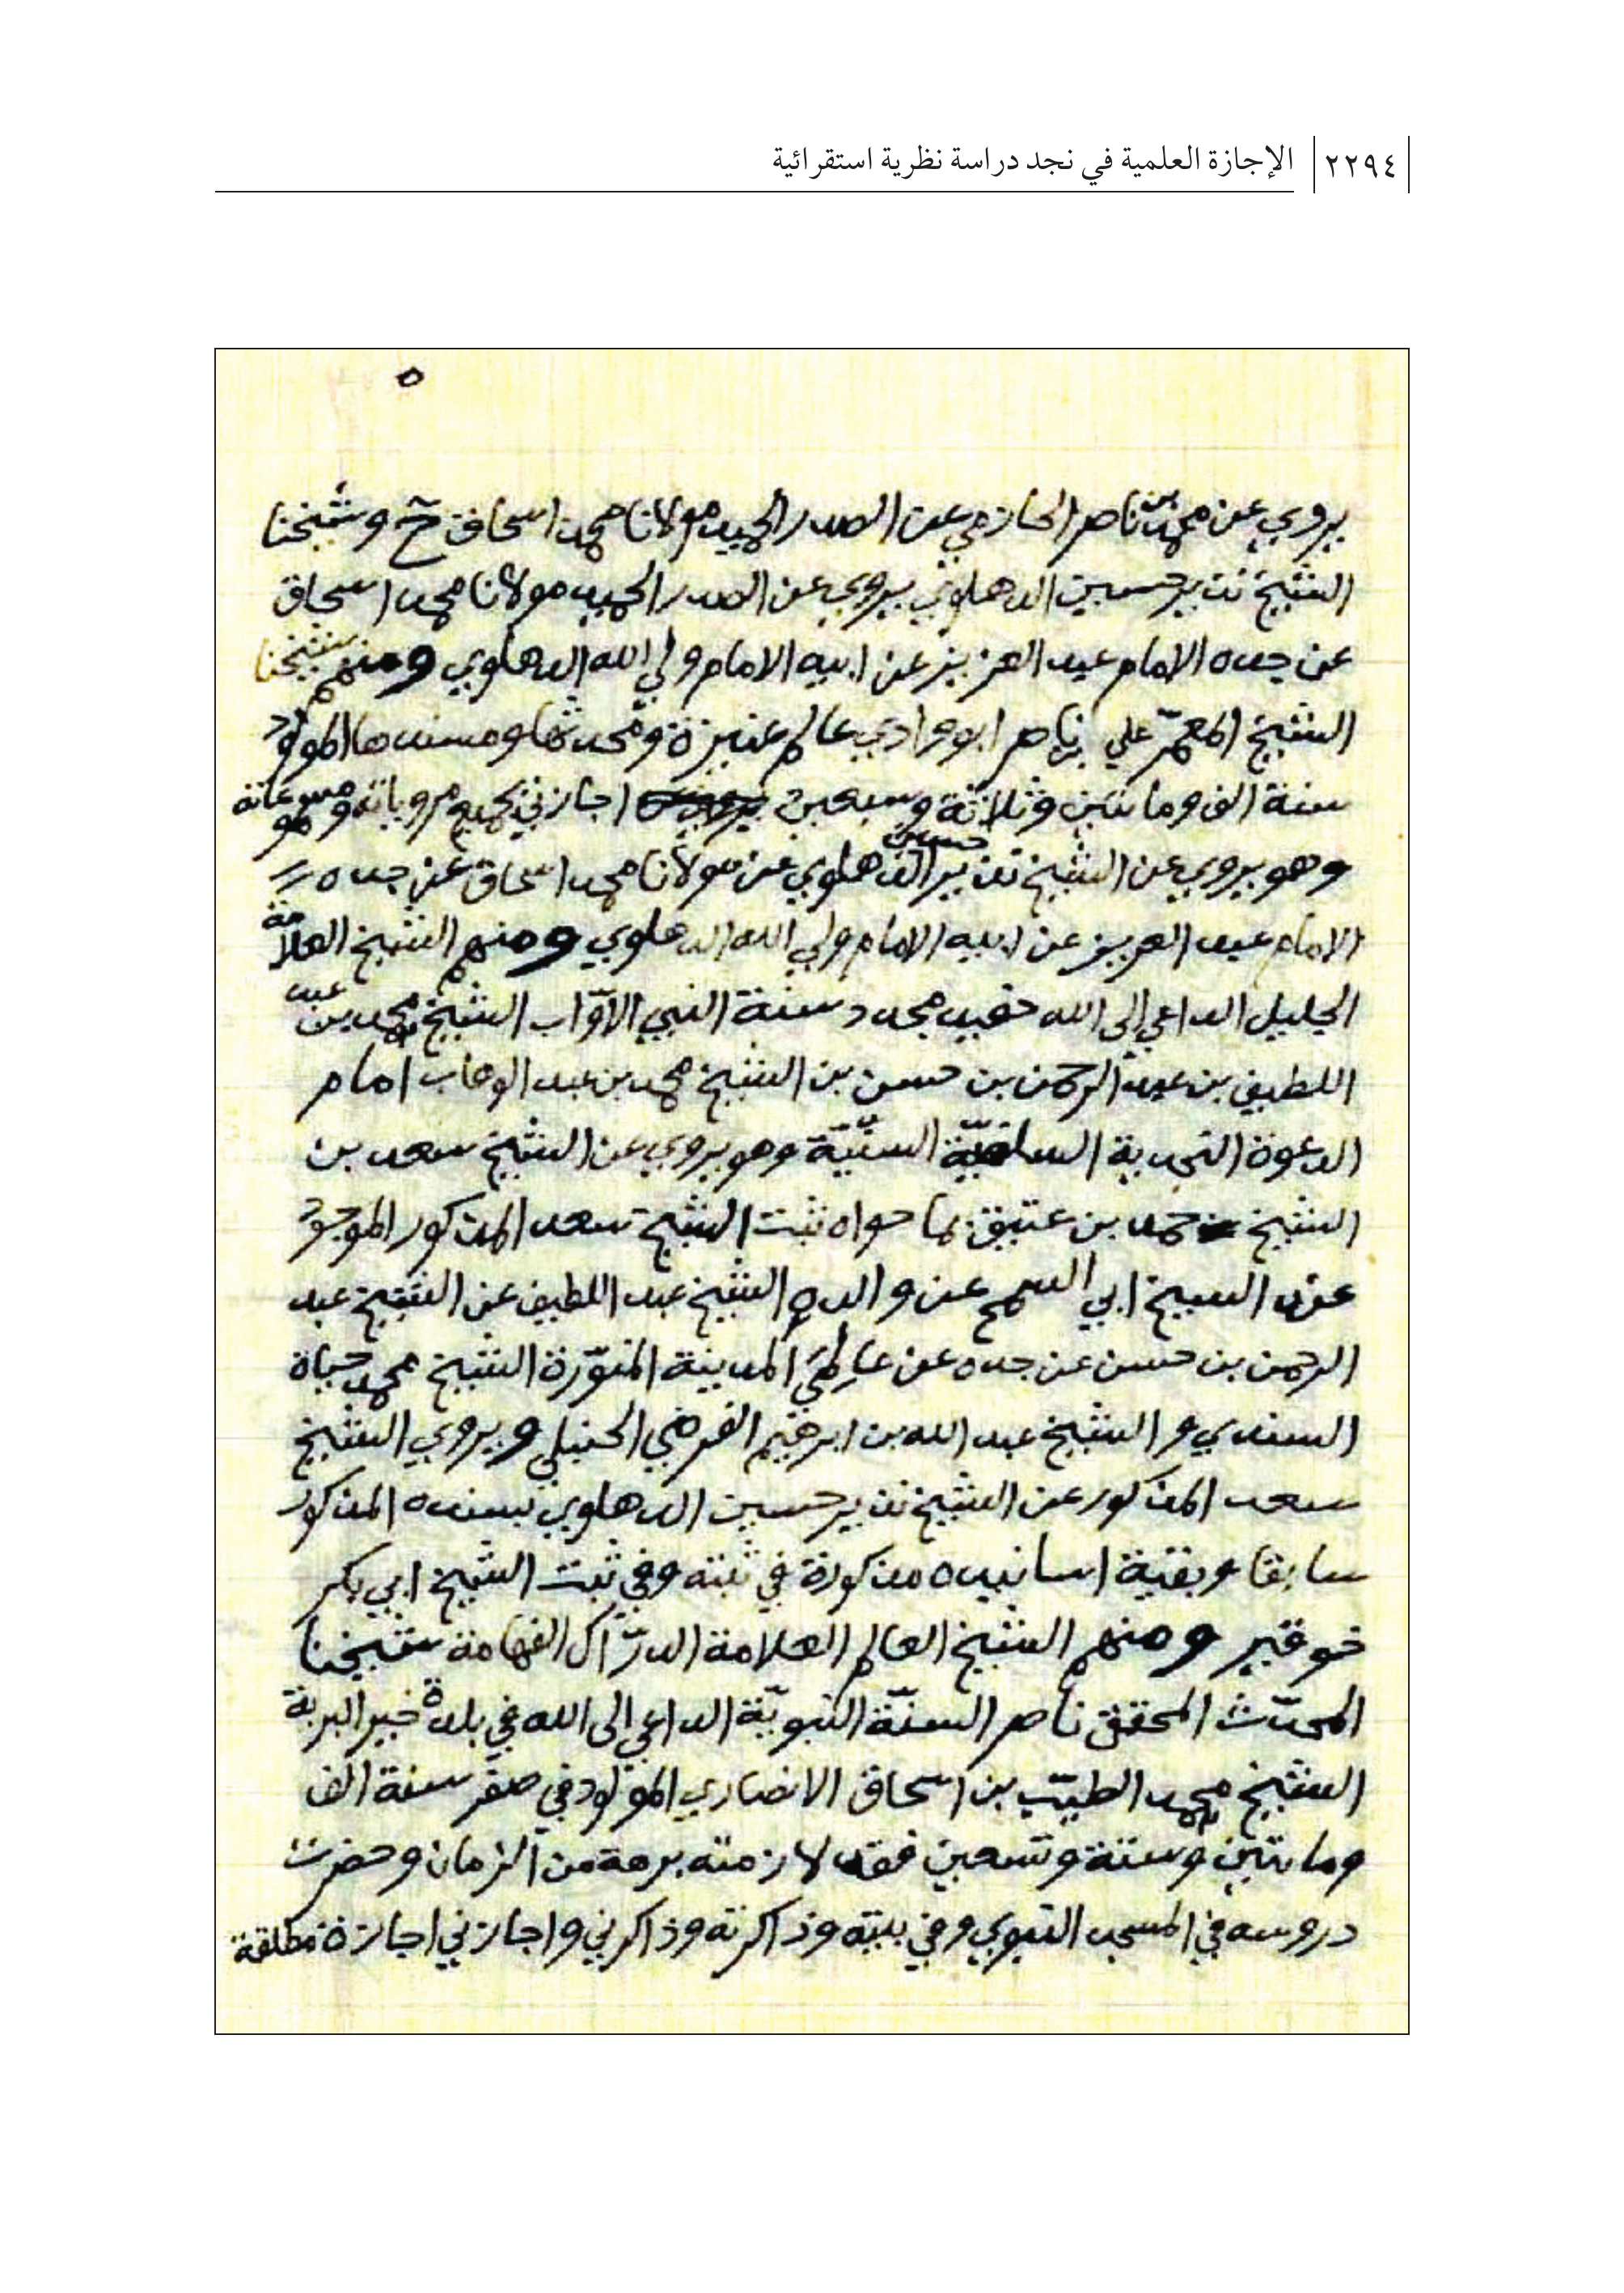 ٢٢٩٤ الإجازة العلمية في نجد دراسة نظرية استقرائية
٥
يروي عن محمد بن ناصر الحازمي عن الصدر الحميد مولانا محمد اسحاق ح وشيخنا
الشيخ نذير حسين الدهلوي يروي عن الصدر الحميد مولانا محمد اسحاق
عن جده الامام عبد العزيز عن ابيه الامام ولي الله الدهلوي ومنهم شيخنا
الشيخ المعمّر علي بن ناصر ابو وادي عالم عنيزة ومحدثها ومسندها المولود
سنة الف ومائتين وثلاثة وسبعين اجازني بجميع مروياته ومسموعاته وهو
وهو يروي عن الشيخ نذير حسين الدهلوي عن مولانا محمد اسحاق عن جده
الامام عبد العزيز عن ابيه الامام ولي الله الدهلوي ومنهم الشيخ العلامة
الجليل الداعي إلى الله حفيد مجدد سنة النبي الأوّاب الشيخ محمد بن عبد
اللطيف بن عبد الرحمن بن حسن بن الشيخ محمد بن عبد الوهاب امام
الدعوة النجدية السلفيّة السنّيّة وهو يروي عن الشيخ سعد بن
الشيخ حمد بن عتيق بما حواه ثبت الشيخ سعد المذكور الموجود
عند الشيخ ابي السمح عن والده الشيخ عبد اللطيف عن الشيخ عبد
الرحمن بن حسن عن جده عن عالِمَي المدينة المنوّرة الشيخ محمد حياة
السندي والشيخ عبد الله بن ابرهيم الفرضي الحنبلي ويروي الشيخ
سعد المذكور عن الشيخ نذير حسين الدهلوي بسنده المذكور
سابقا وبقية اسانيده مذكورة في ثبته وفي ثبت الشيخ ابي بكر
خوقير ومنهم الشيخ العالم العلامة الدرّاك الفهامة شيخنا
المحدّث المحقق ناصر السنّة النبويّة الداعي الى الله في بلدة خير البرية
الشيخ محمد الطيّب بن اسحاق الانصاري المولود في صفر سنة الف
ومائتين وستة وتسعين فقد لازمته برهة من الزمان وحضرت
دروسه في المسجد النبوي وفي بيته وذاكرته وذاكرني واجازني اجازة مطلقة